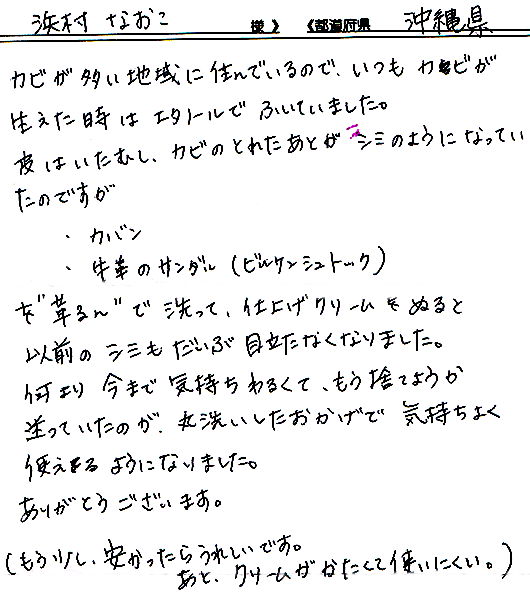 浜村 なおこ 様 》 《都道府県 沖縄県
カビが多い地域に住んでいるので、いつもカビが
生えた時はエタノールでふいていました。
皮はいたむし、カビのとれたあとがシミのようになってい
たのですが
・カバン
・牛革のサンダル(ビルケンシュトック)
を"革るん"で洗って、仕上げクリームをぬると
以前のシミもだいぶ目立たなくなりました。
何より今まで気持ちわるくて、もう捨てようか
迷っていたのが、丸洗いしたおかげで気持ちよく
使えるようになりました。
ありがとうございます。
(もう少し、安かったらうれしいです。
あと、クリームがかたくて使いにくい。)